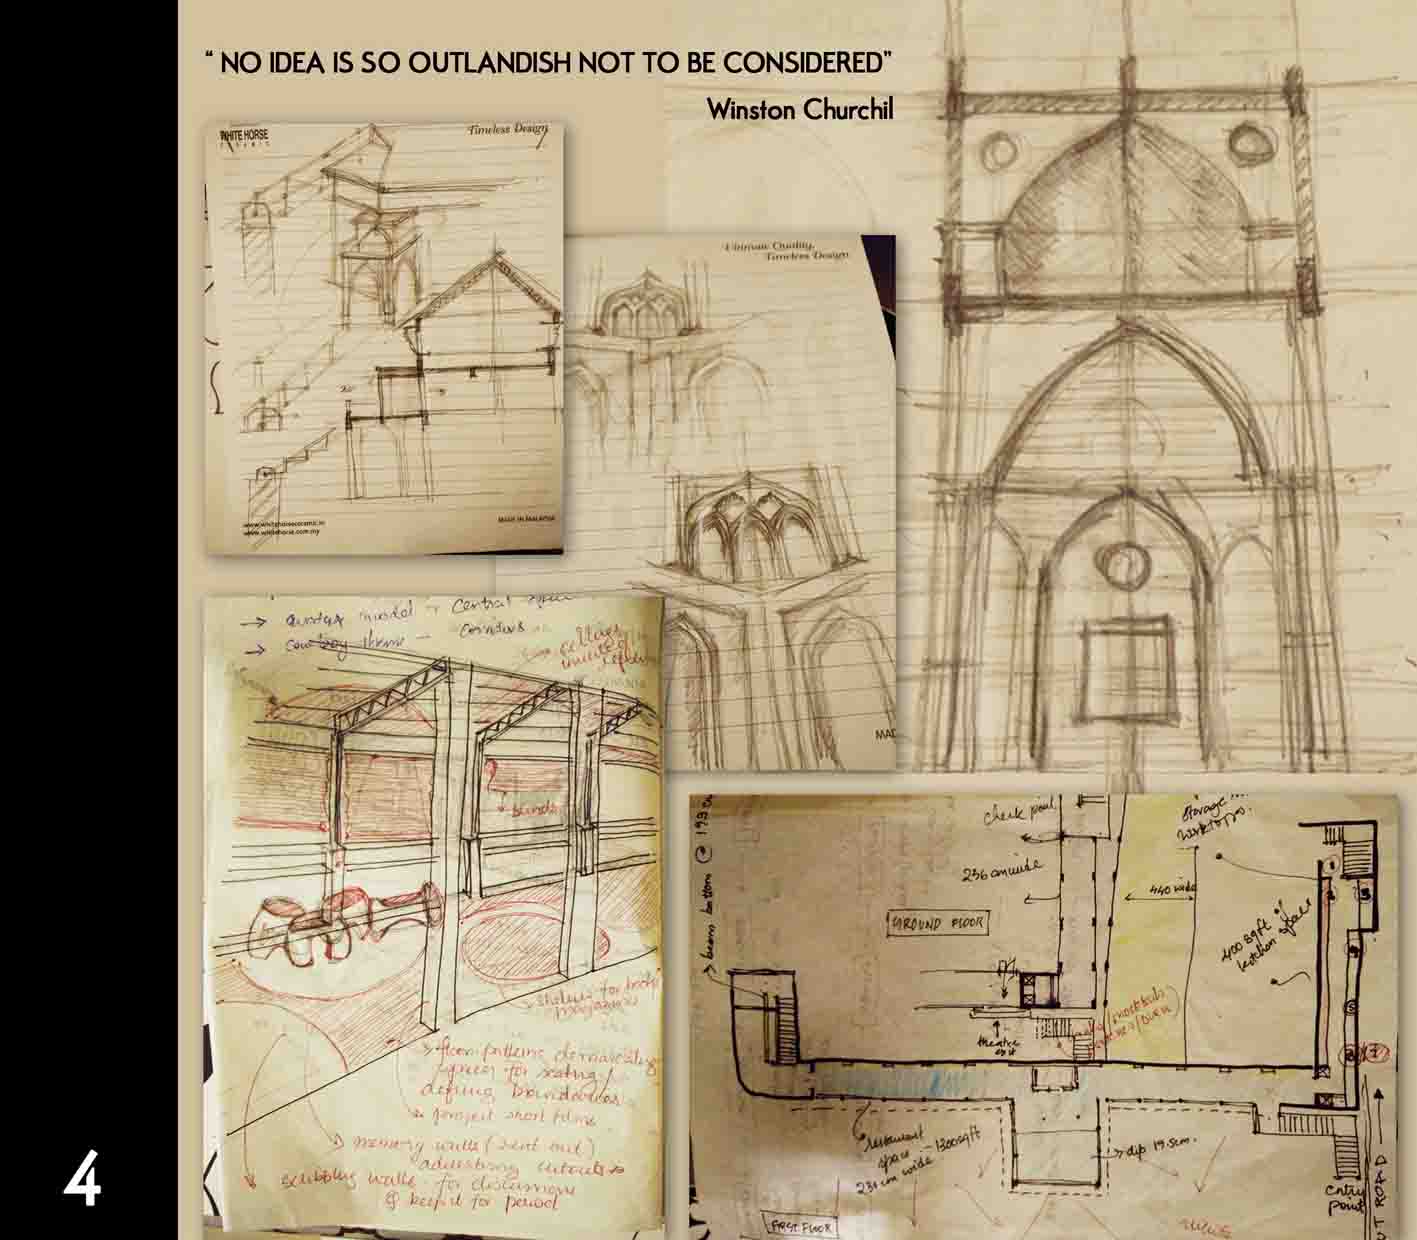 “ NO IDEA IS SO OUTLANDISH NOT TO BE CONSIDERED”
Winston Churchil
WHITE HORSE
CERAMIC
Timeless Design
www.whitehorseceramic.in
www.whitehorse.com.my
MADE IN MALAYSIA
Ultimate Quality,
Timeless Design
MAD
→ model → Central
→ cowboy theme - corridors
ceilings
blinds
shelves for books
magazines
→ floor patterns demarcating
spaces for seating /
defining boundaries
project short films
memory walls (rent out)
advertising cutouts
scribbling walls for discussions
& keep it for period
beam bottom @ 193 cm
check point
236 cm wide
GROUND FLOOR
storage
worktops.
440 wide
400 sqft of
kitchen space
theatre
exit
restaurant
space - 1300 sqft
231 cm wide
dip 19.5cm.
entry
point
UT ROAD
FIRST FLOOR
VIEWS
4